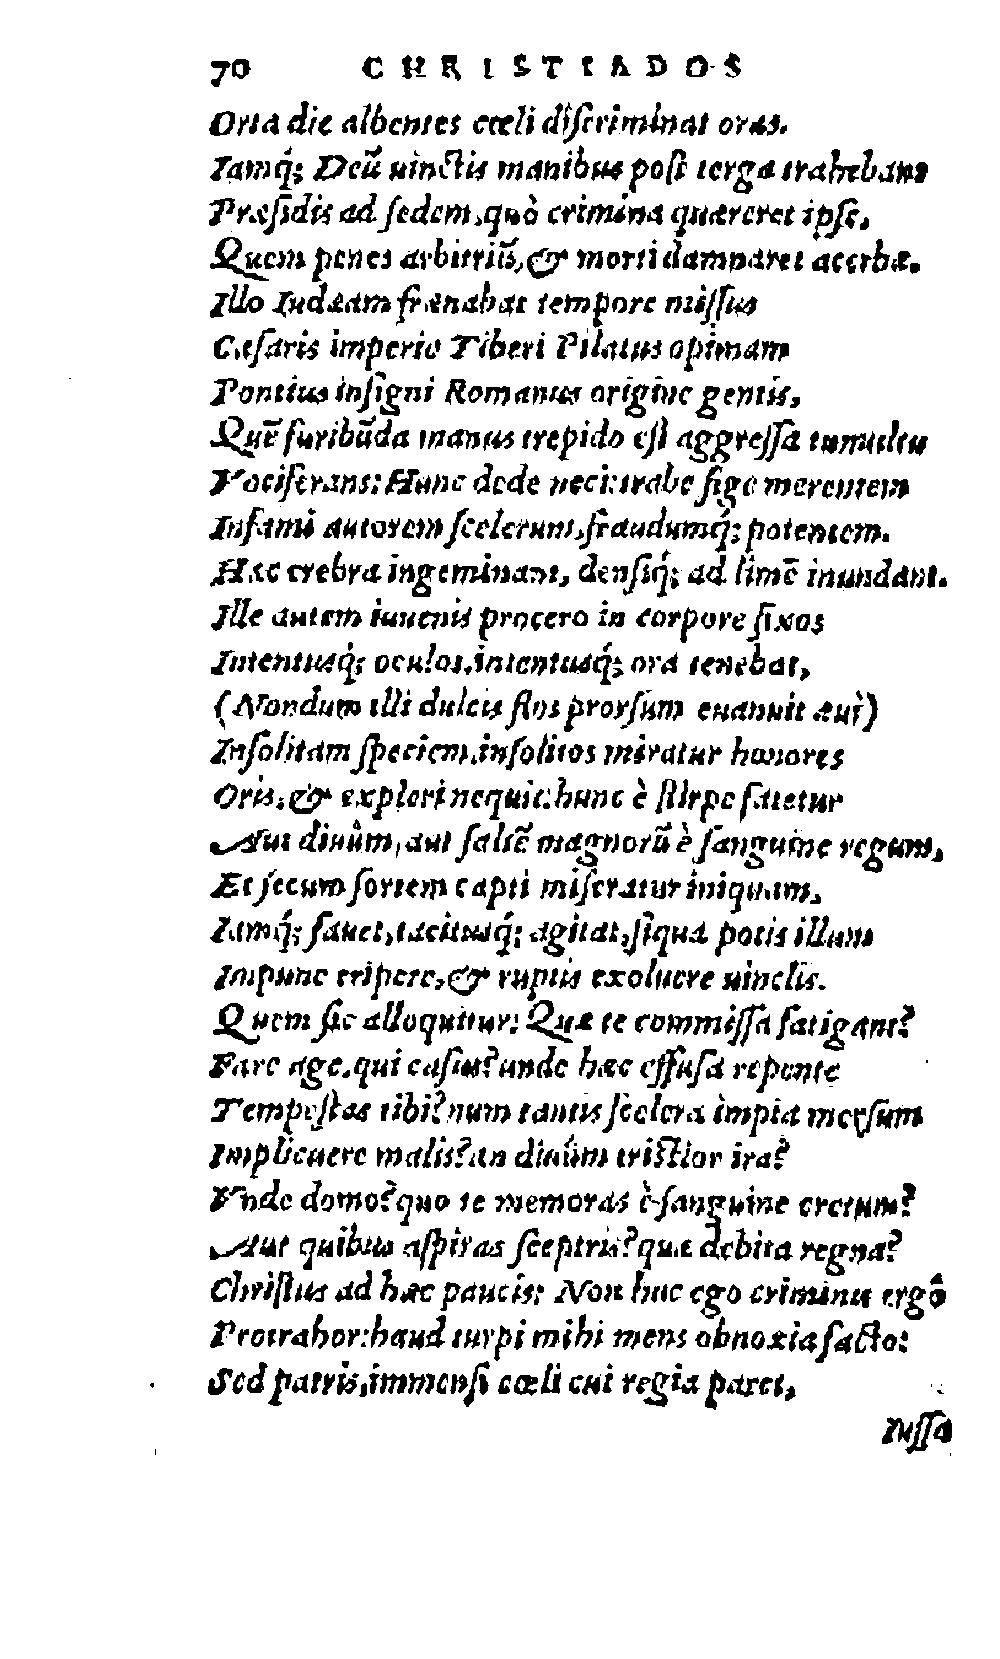 70 CHRISTIADOS
Orta die albentes cœli discriminat oras.
Iamq́; Deũ uinctis manibus post terga trahebant
Præsidis ad sedem, quò crimina quæreret ipse,
Quem penes arbitriũ, & morti damnaret acerbæ.
Illo Iudæam frænabat tempore missus
Cæsaris imperio Tiberi Pilatus opimam
Pontius insigni Romanus origine gentis,
Quẽ furibũda manus trepido est aggressa tumultu
Vociferans: Hunc dede neci: trabe fige merentem
Infami autorem scelerum, fraudumq́; potentem.
Hæc crebra ingeminant, densiq́; ad limẽ inundant.
Ille autem iuuenis procero in corpore fixos
Intentusq́; oculos, intentusq́; ora tenebat,
(Nondum illi dulcis flos prorsum euanuit æui)
Insolitam speciem, insolitos miratur honores
Oris, & expleri nequit: hunc è stirpe fatetur
Aut diuûm, aut saltẽ magnorũ è sanguine regum,
Et secum sortem capti miseratur iniquam,
Iamq́; fauet, tacitusq́; agitat, siqua potis illum
Impune eripere, & ruptis exoluere uinclis.
Quem sic alloquitur: Quæ te commissa fatigant?
Fare age, qui casus? unde hæc effusa repente
Tempestas tibi? num tantis scelera impia mersum
Implicuere malis? an diuûm tristior ira?
Vnde domo? quo te memoras è sanguine cretum?
Aut quibus aspiras sceptris? quæ debita regna?
Christus ad hæc paucis: Non huc ego criminis ergô
Protrahor: haud turpi mihi mens obnoxia facto:
Sed patris, immensi cœli cui regia paret,
Iussa